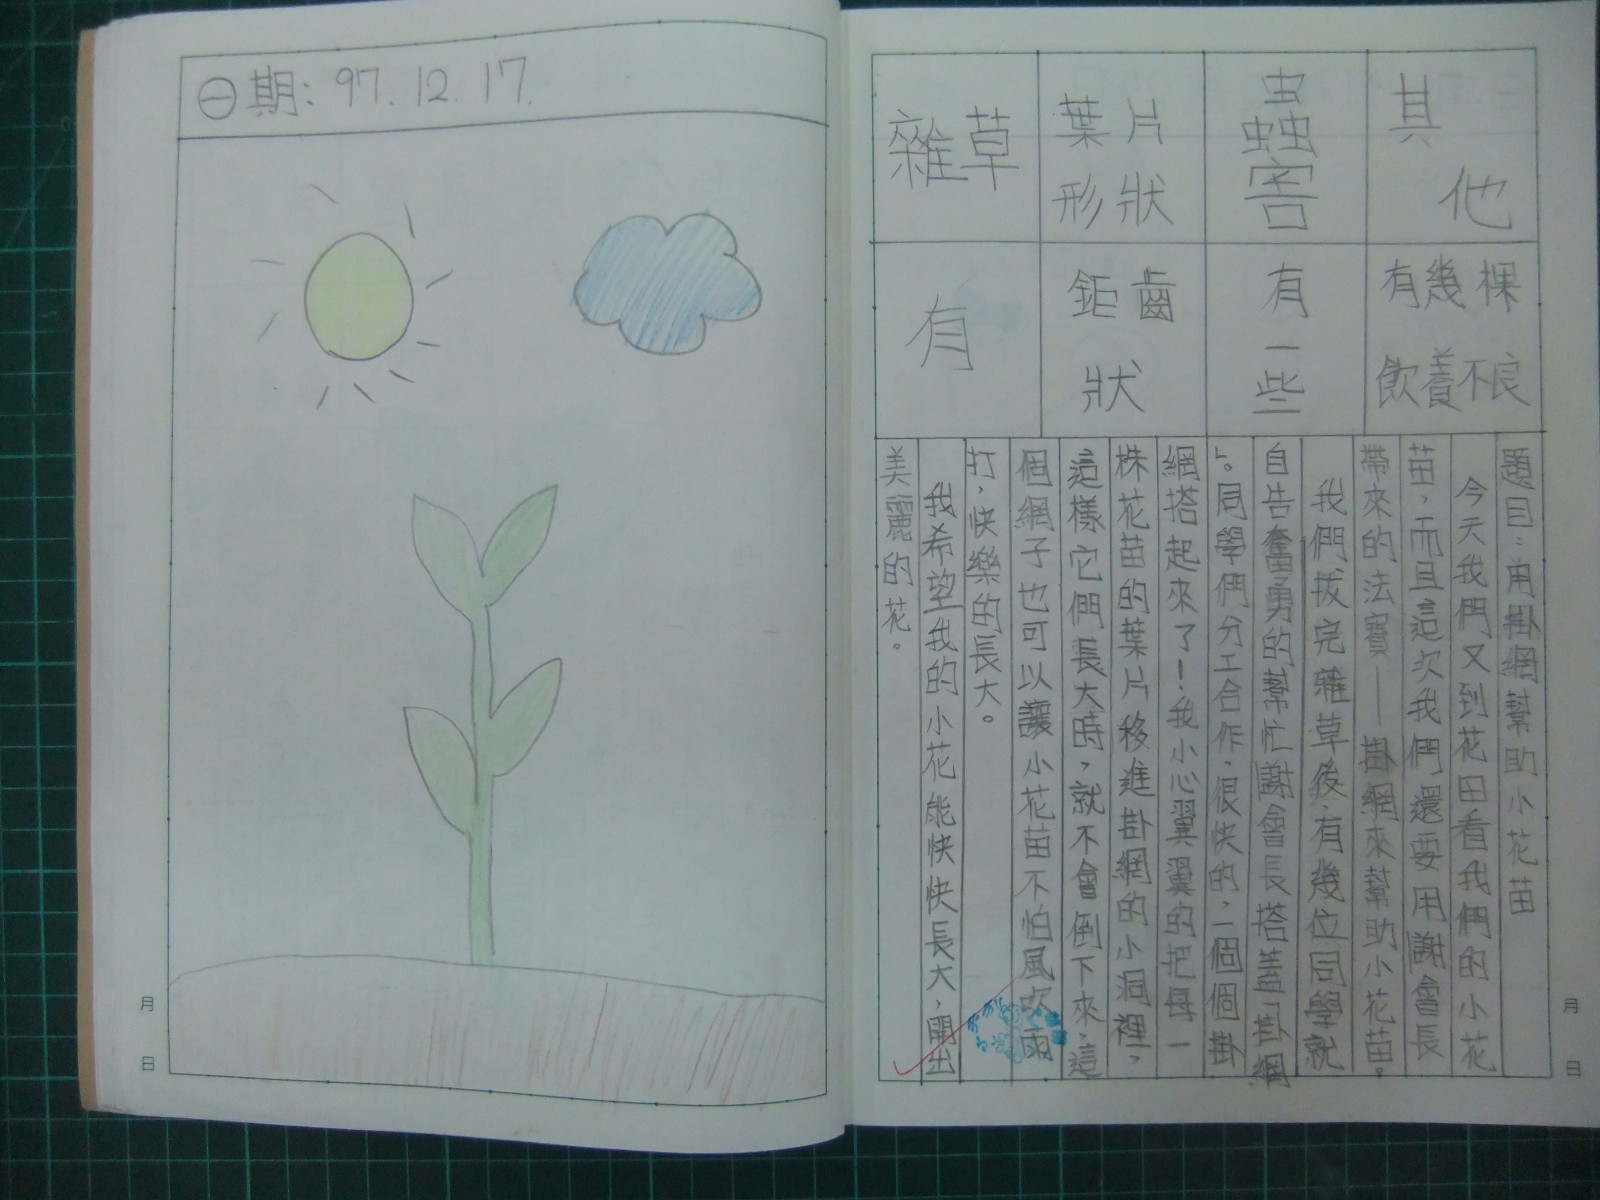 日期：97.12.17.
其他
蟲害
葉片形狀
雜草
有幾棵飲養不良
有一些
鉅齒狀
有
題目：用掛網幫助小花苗
今天我們又到花田看我們的小花
苗，而且這次我們還要用謝會長
帶來的法寶——掛網來幫助小花苗。
我們拔完雜草後，有幾位同學就
自告奮勇的幫忙謝會長搭蓋「掛網
」。同學們分工合作，很快的，一個個掛
網搭起來了！我小心翼翼的把每一
株花苗的葉片移進掛網的小洞裡，
這樣它們長大時，就不會倒下來，這
個網子也可以讓小花苗不怕風吹雨
打，快樂的長大。
我希望我的小花能快快長大，開出
美麗的花。
月
日
月
日